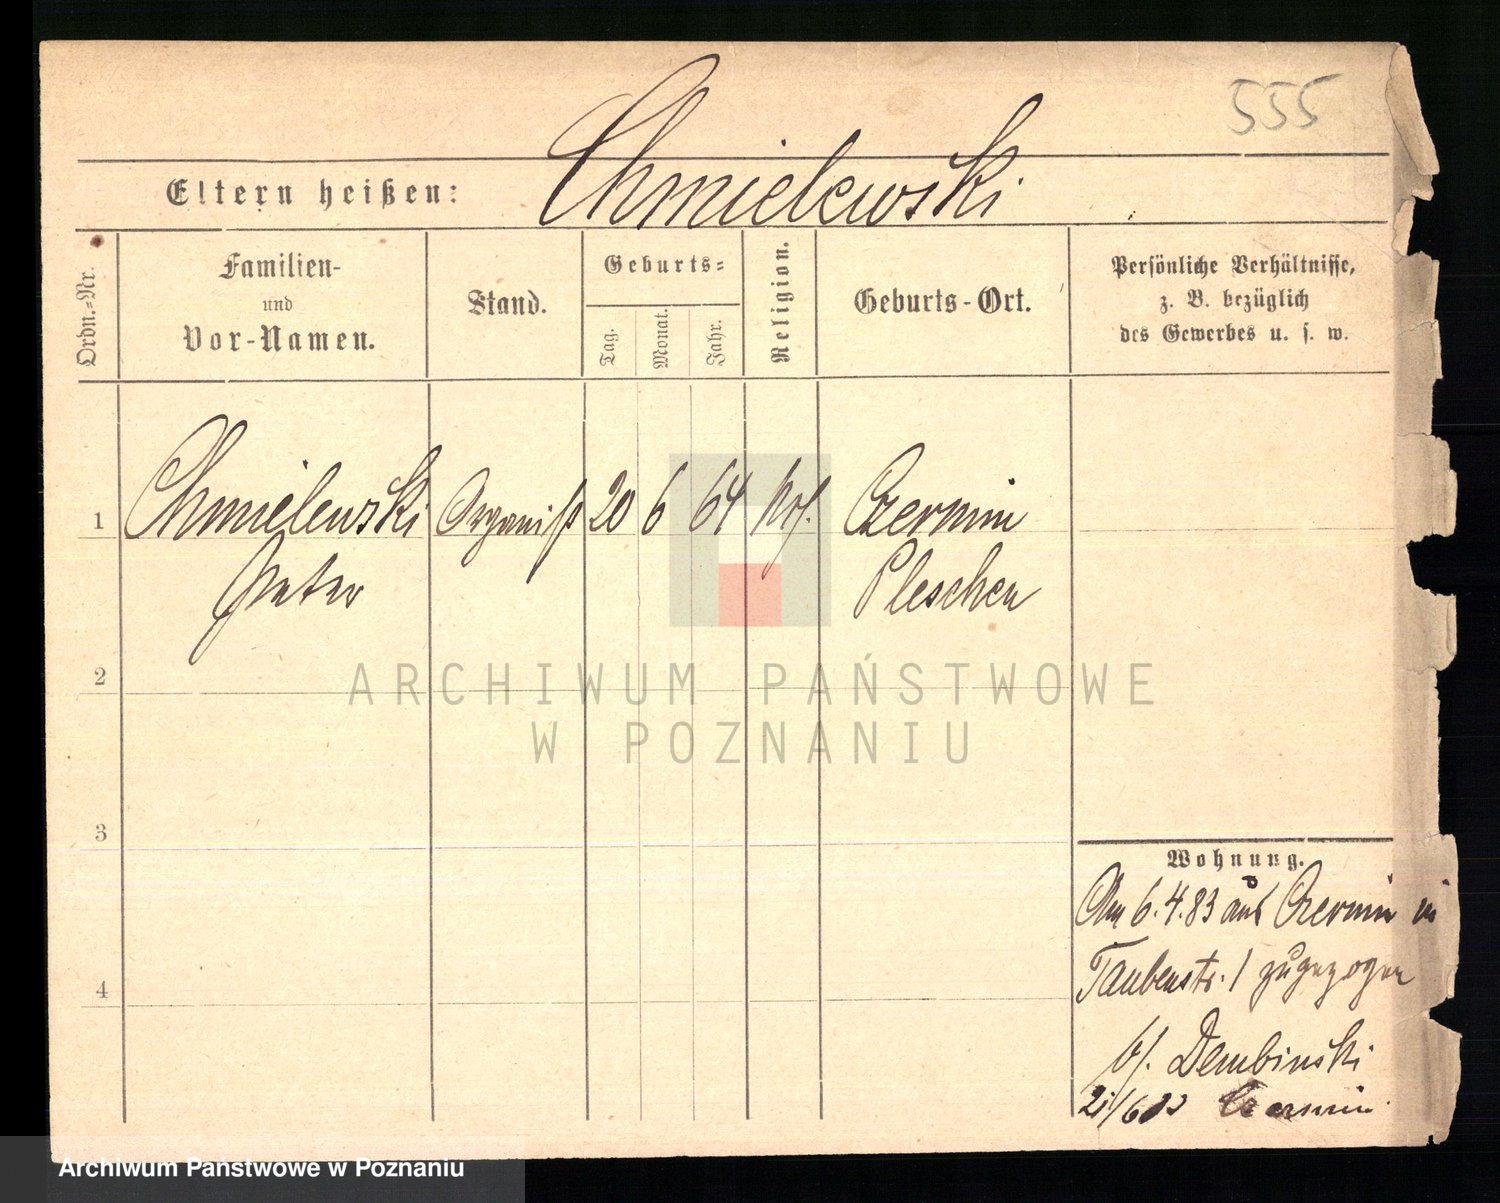 555
Chmielewski
Eltern heißen:
Ordn.=Nr.
Familien-
und
Vor-Namen.
Stand.
Geburts=
Tag.
Monat.
Jahr.
Religion.
Geburts-Ort.
Persönliche Verhältnisse,
z. B. bezüglich
des Gewerbes u. s. w.
1 Chmielewski Organist 20 6 64 Czermin
Peter Pleschen
2
ARCHIWUM PAŃSTWOWE
W POZNANIU
3
Wohnung.
Am 6.4.83 aus Czermin in
Taubenstr. 1 zugezogen
4
b/. Dembinski
21/6 83 Czermin
Archiwum Państwowe w Poznaniu